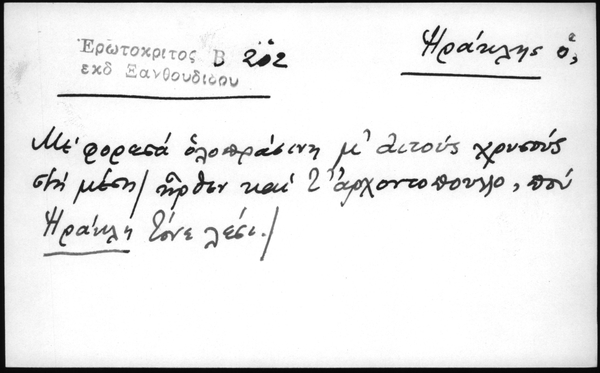 Ἐρωτόκριτος Β 202
ἐκδ Ξανθουδίδου
Ἡράκλης ὁ,
Μέ φορεσά ὁλοπράσινη μ' ἀιτούς χρυσούς
στή μέση/ ἦρθεν καί τ' ἀρχοντόπουλο, πού
Ἡράκλη τόνε λέσι./